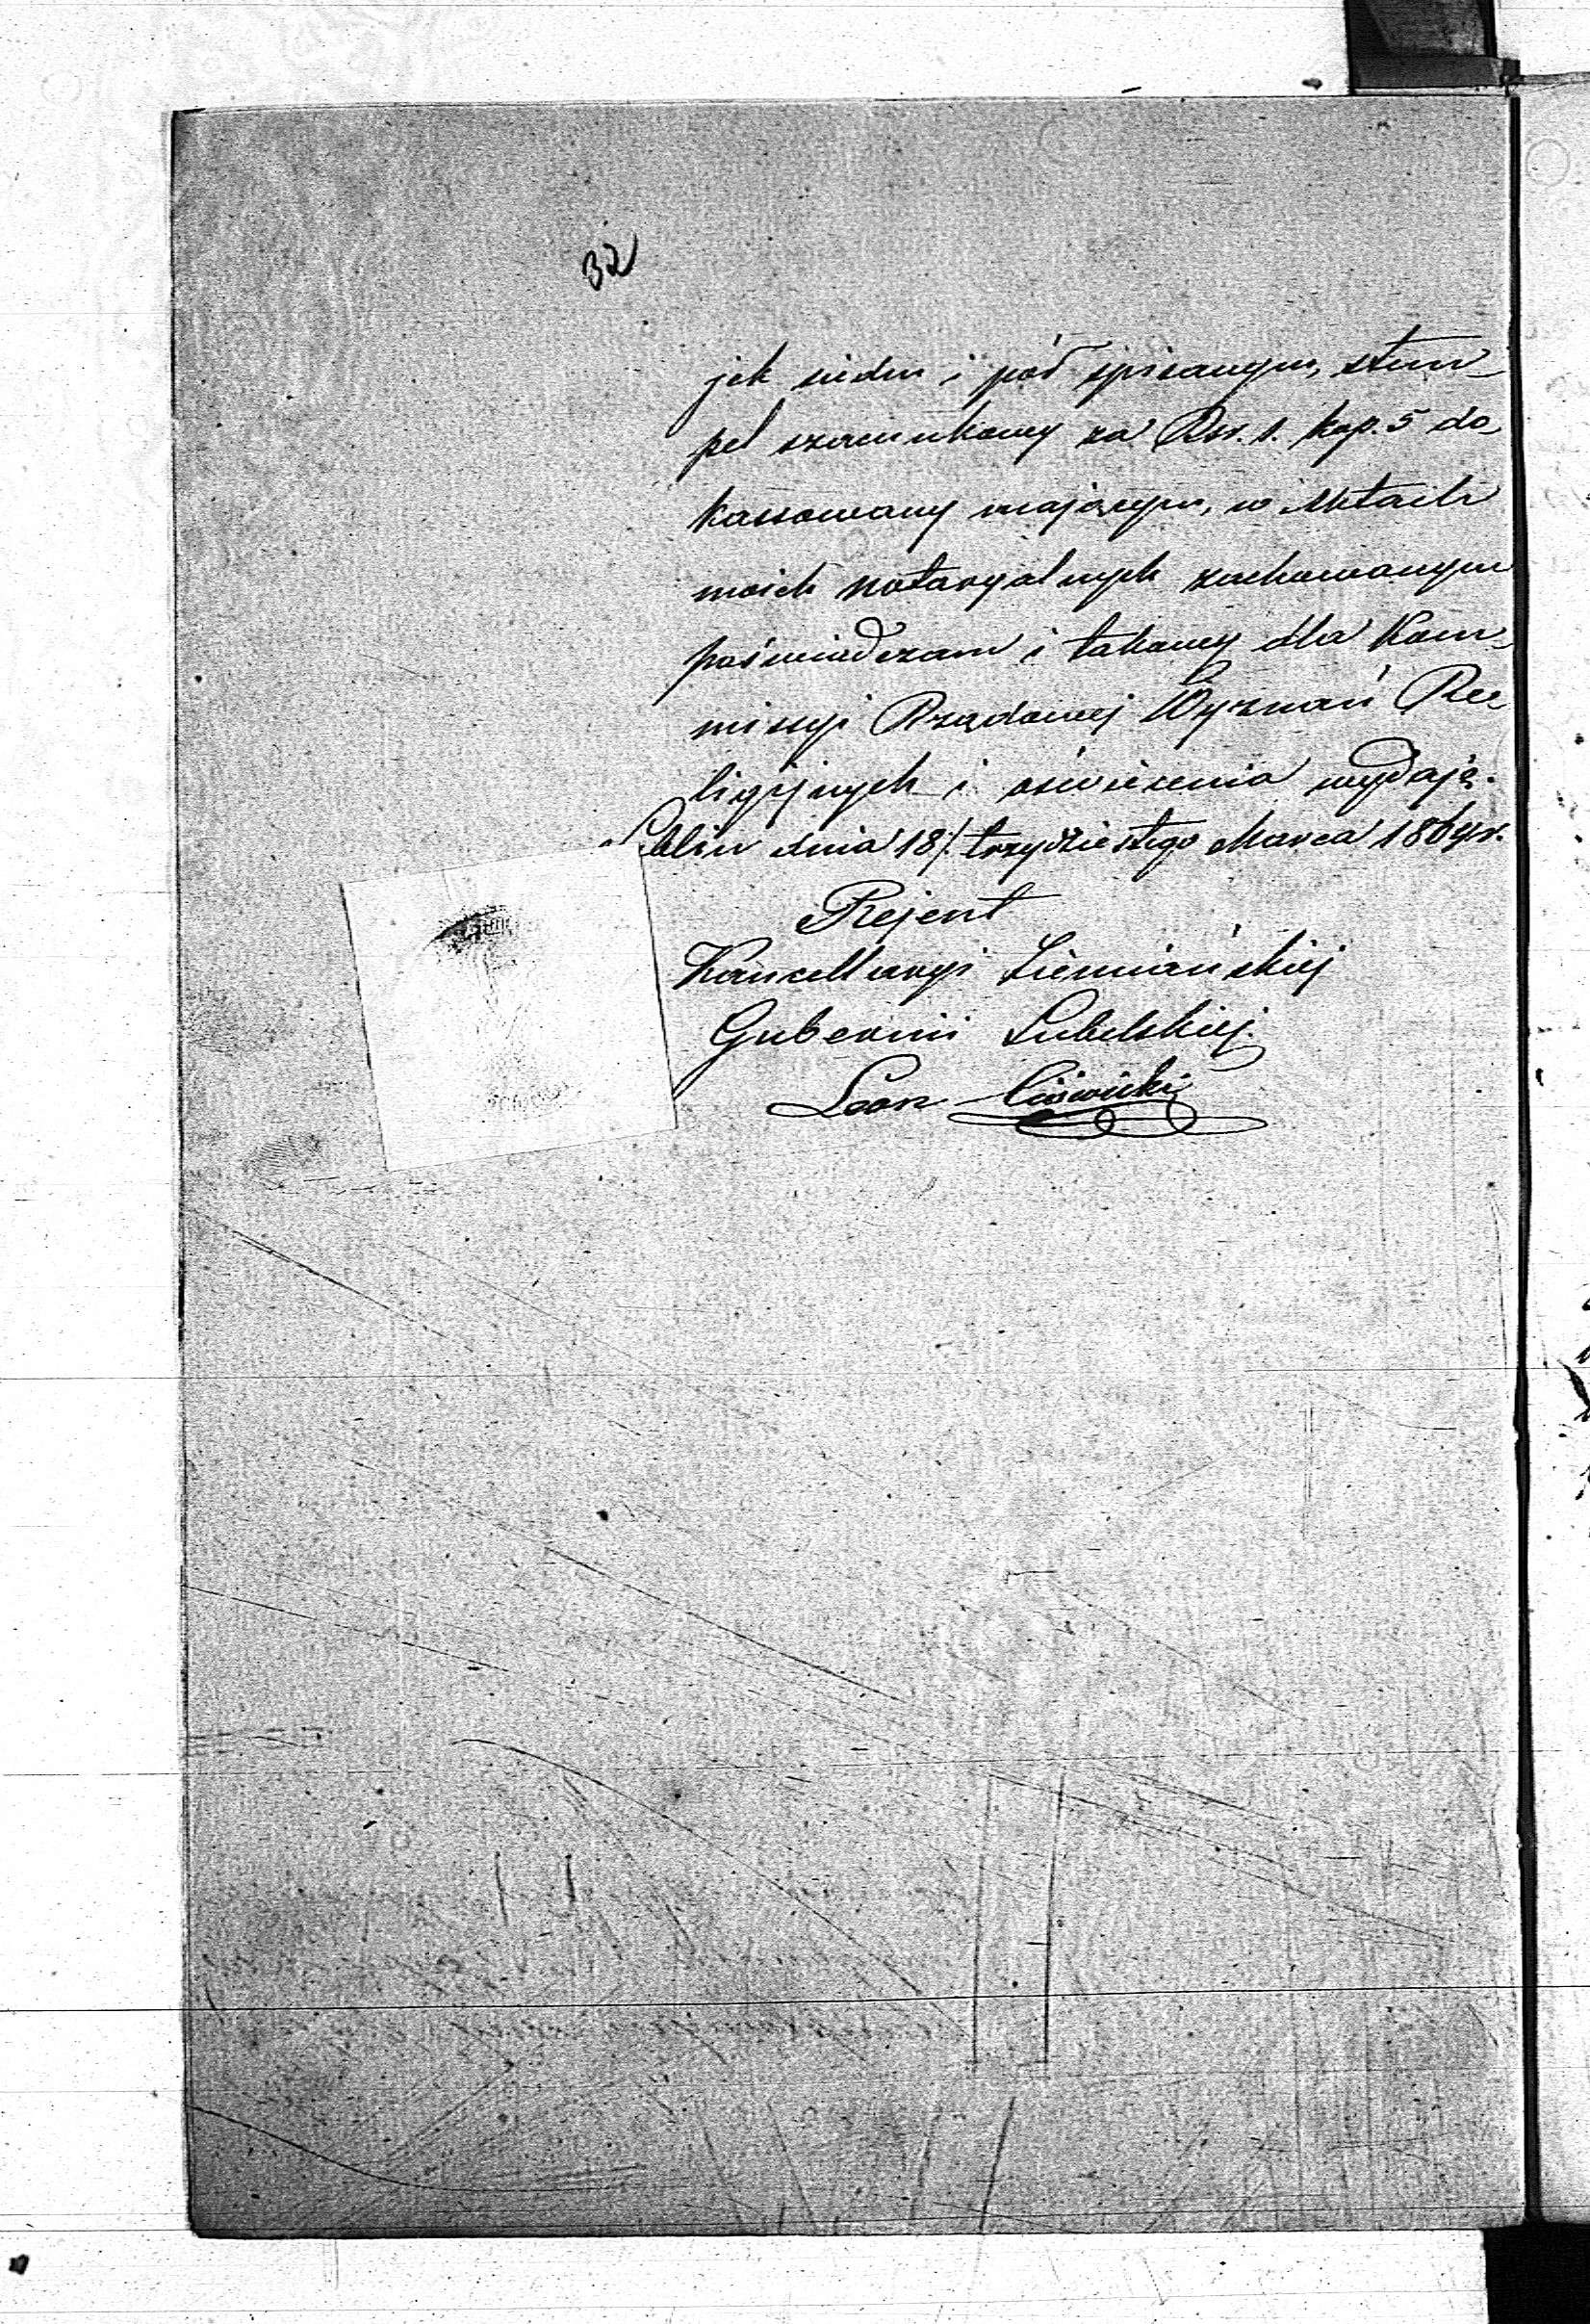 32
jek siedm i pół spisanym, stem-
pel szacunkowy za Rsr. 1. kop. 5 do-
kassowany mającym, w Aktach
moich Notaryalnych zachowanym
poświadczam i takowy dla Kom-
missyi Rządowej Wyznań Re-
ligijnych i oświecenia wydaję.
Lublin dnia 18/. trzydziestego Marca 1864 r.
Rejent
Kancellaryi Ziemiańskiej
Gubernii Lubelskiej.
Leon